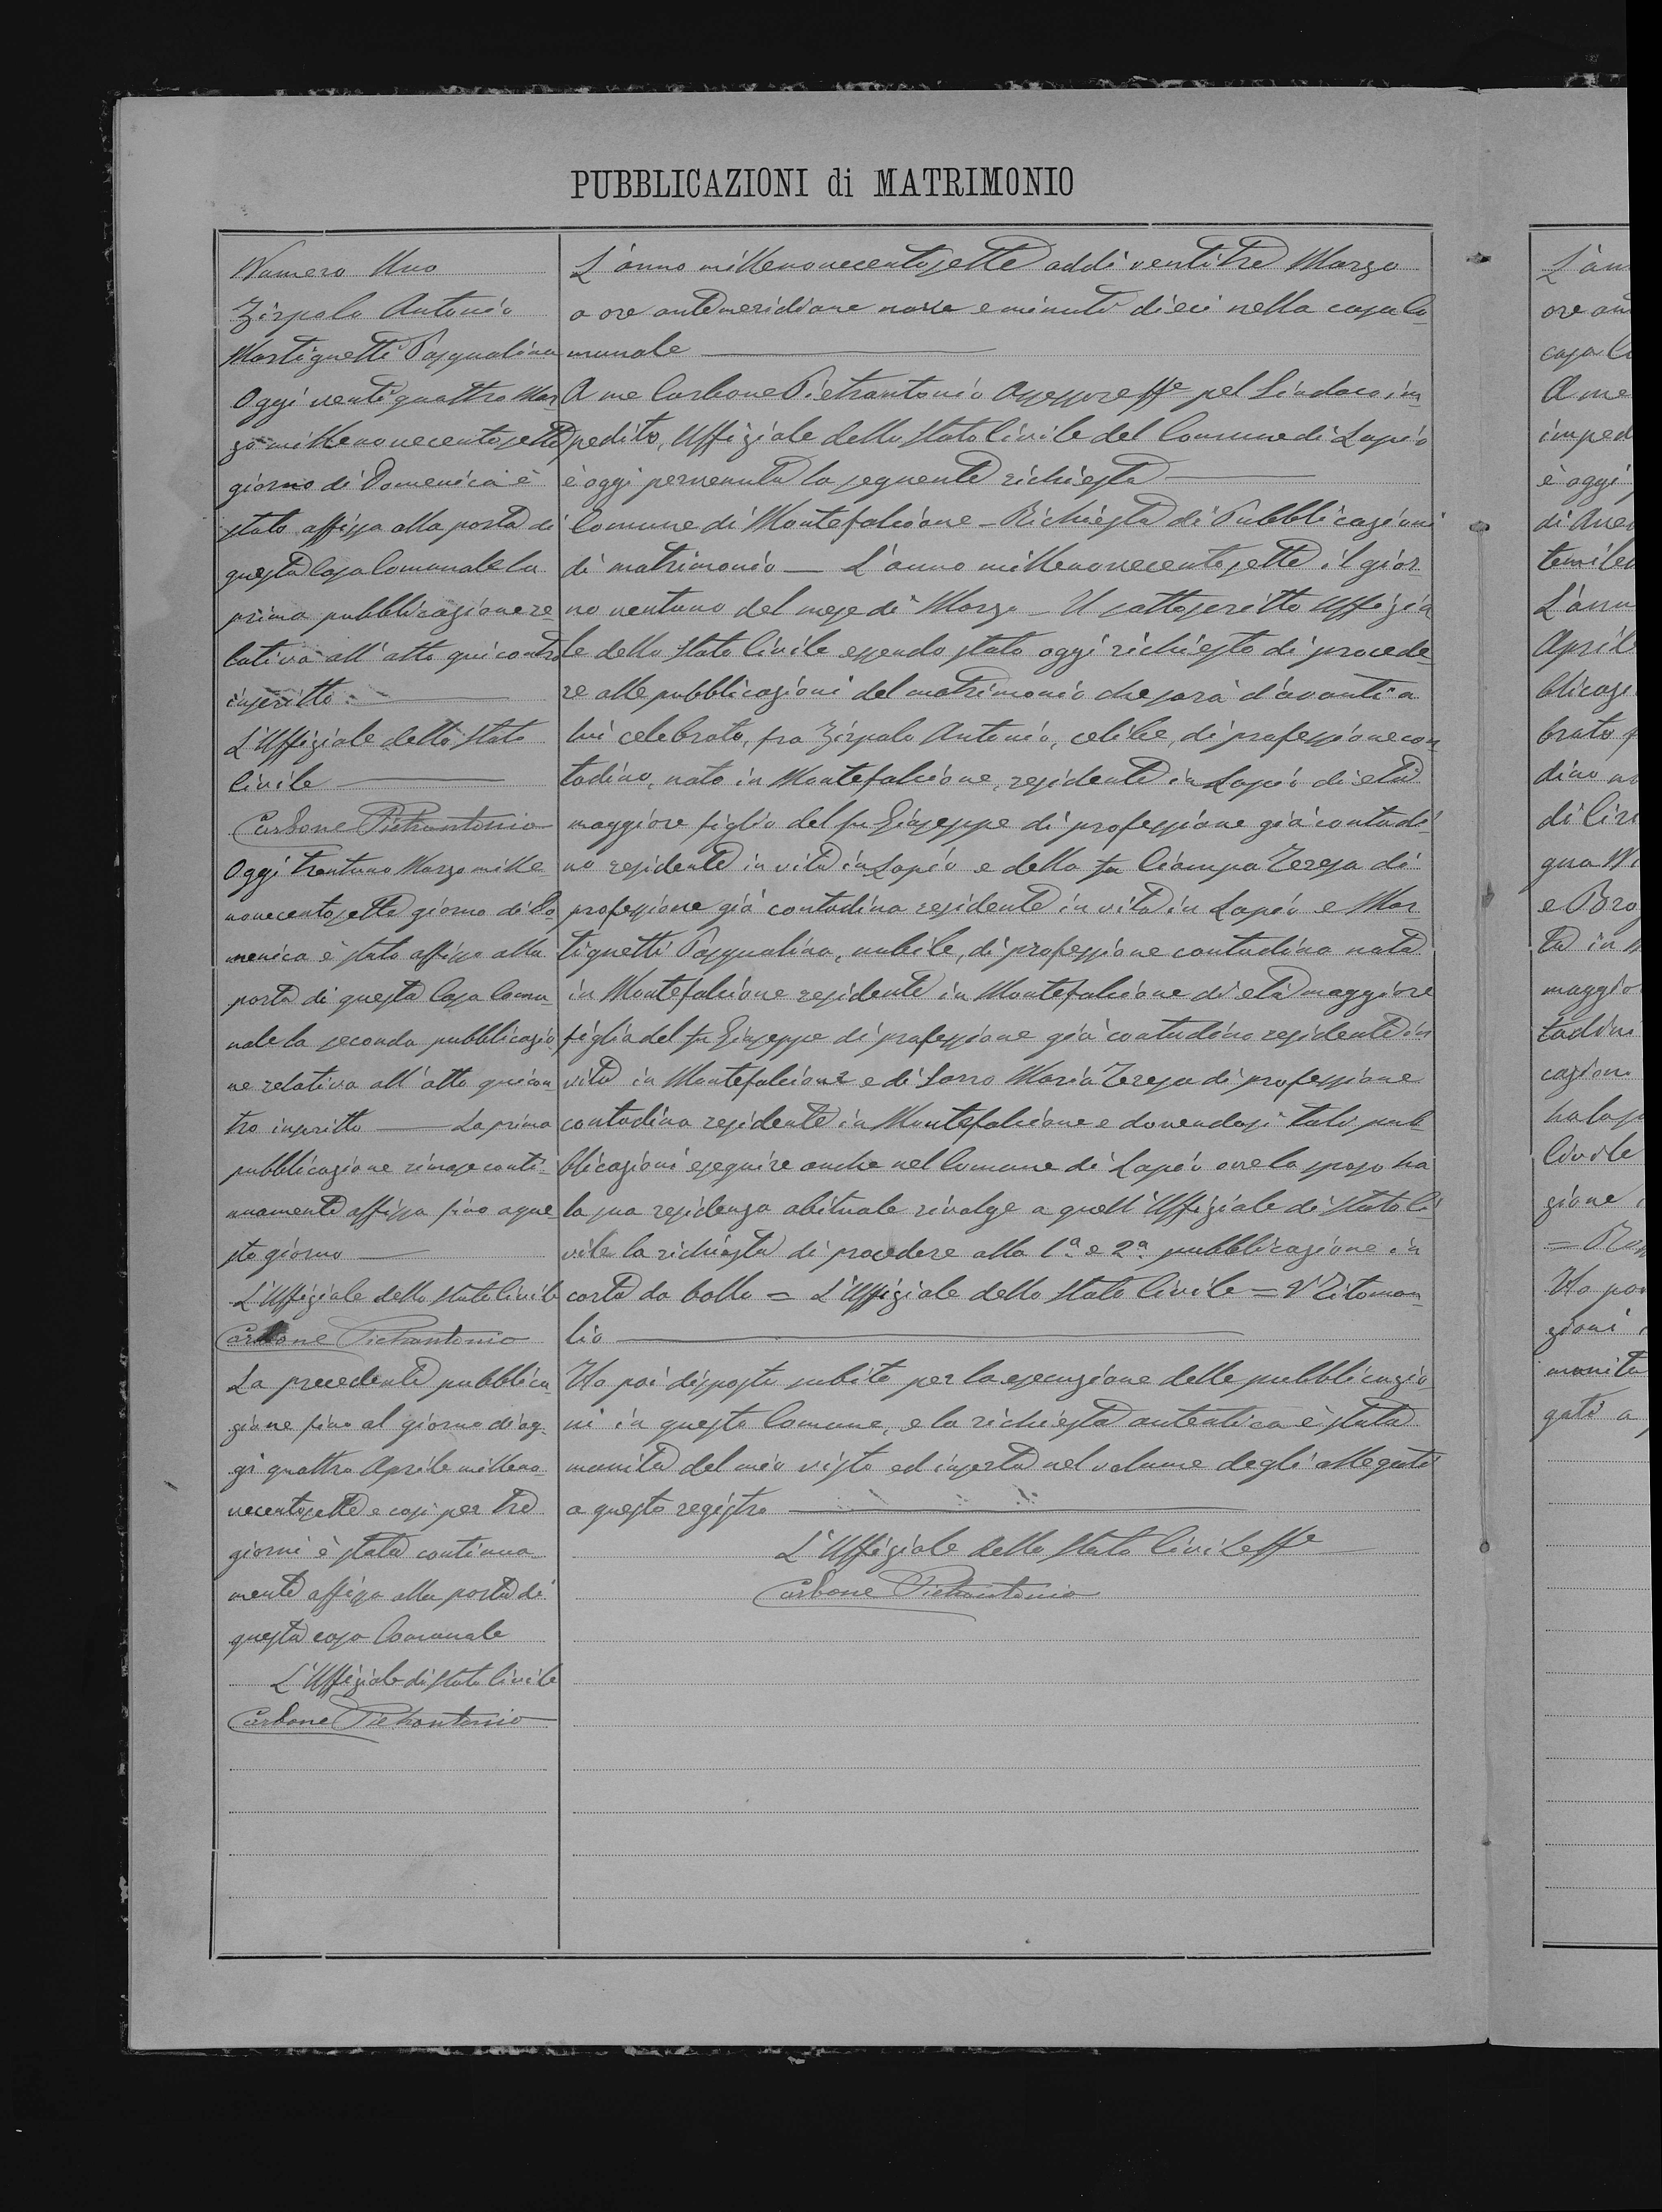 PUBBLICAZIONI di MATRIMONIO
Numero Uno
Zirpolo Antonio
Martignetti Pasqualina
Oggi venti quattro Mar
zo millenovecentosette
giorno di Domenica è
stato affissa alla porta di
questa Casa Comunale la
prima pubblicazione re-
lativa all'atto qui contro
inscritto.
L'Uffiziale dello Stato
Civile
Carbone Pietrantonio
Oggi trentuno Marzo mille-
novecentosette giorno di Do
menica è stato affissa alla
porta di questa Casa Comu
nale la seconda pubblicazio
ne relativa all'atto qui con
tro inscritto — La prima
pubblicazione rimase conti-
nuamente affissa fino a que
sto giorno
L'Uffiziale dello Stato Civile
Carbone Pietrantonio
La precedente pubblica
zione fino al giorno di og-
gi quattro Aprile milleno
vecentosette e così per tre
giorni è stata continua
mente affissa alla porta di
questa casa Comunale
L'Uffiziale di Stato Civile
Carbone Pietrantonio
L'anno millenovecentosette addì ventitre Marzo
a ore antemeridiane nove e minuti dieci nella casa Co
munale
A me Carbone Pietrantonio Assessore ffe pel Sindaco im
pedito, Uffiziale dello Stato Civile del Comune di Lapio
è oggi pervenuta la seguente richiesta
Comune di Montefalcione – Richiesta di Pubblicazioni
di matrimonio — L'anno millenovecentosette il gior
no ventuno del mese di Marzo – Il sottoscritto Uffizia
le dello Stato Civile essendo stato oggi richiesto di procede-
re alle pubblicazioni del matrimonio che sarà d'avanti a
lui celebrato, fra Zirpolo Antonio, celibe, di professione con
tadino, nato in Montefalcione, residente in Lapio di età
maggiore figlio del fu Giuseppe di professione già contadi
no residente in vita in Lapio e della fu Ciampa Teresa di
professione già contadina residente in vita in Lapio e Mar
tignetti Pasqualina, nubile, di professione contadina nata
in Montefalcione residente in Montefalcione di età maggiore
figlia del fu Giuseppe di professione già contadino residente in
vita in Montefalcione e di Sarro Maria Teresa di professione
contadina residente in Montefalcione e dovendosi tali pub
blicazioni eseguire anche nel Comune di Lapio ove lo sposo ha
la sua residenza abituale rivolge a quell'Uffiziale di Stato Ci
vile la richiesta di procedere alla 1ª e 2ª pubblicazione in
carta da bollo = L'Uffiziale dello Stato Civile =
Ho poi disposto subito per la esecuzione delle pubblicazio
ni in questo Comune, e la richiesta autentica è stata
munita del mio visto ed inserta nel volume degli allegati
a questo registro
L'Uffiziale dello Stato Civile ffe
Carbone Pietrantonio